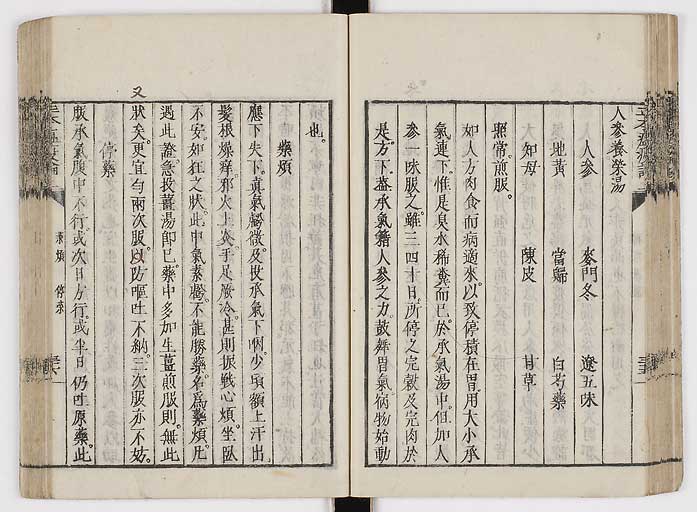 人參養榮湯
人參　麥門冬　遼五味
地黃　當歸　白芍藥
知母　陳皮　甘草
照常煎服。
如人方肉食而病適來。以致停積在胃。用大小承
氣連下。惟是臭水稀糞而已。於承氣湯中。但加人
參一味服之。雖三四十日。所停之完穀及完肉。於
是方下。蓋承氣藉人參之力。鼓舞胃氣。宿物始動
也。
藥煩
應下失下。真氣虧微。及投承氣下咽。少頃額上汗出
髮根燥癢。邪火上炎。手足厥冷。甚則振戰心煩。坐臥
不安。如狂之狀。此中氣素虧。不能勝藥。名為藥煩。凡
遇此證。急投薑湯即已。藥中多加生薑煎服。則無此
狀矣。更宜勻兩次服。以防嘔吐不納。三次服亦不妨。
又
停藥
服承氣腹中不行。或次日方行。或半日仍吐原藥。此
藥煩　停藥